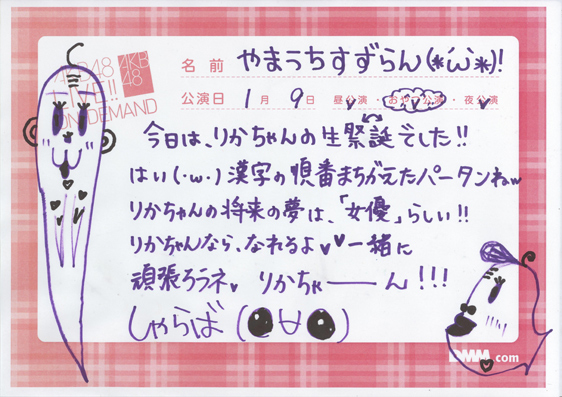 AKB48 LIVE!! ON DEMAND
AKB48
名前 やまうちすずらん(*´ω`*)!
公演日 1月 9日 昼公演・おやつ公演・夜公演
今日は、りかちゃんの生祭誕でした!!
はい(・ω・)漢字の順番まちがえたパータンねw
りかちゃんの将来の夢は、「女優」らしい!!
りかちゃんなら、なれるよ♥♥一緒に
頑張ろうネ♥ りかちゃーーん!!!
しゃらば(●∀●)
DMM.com